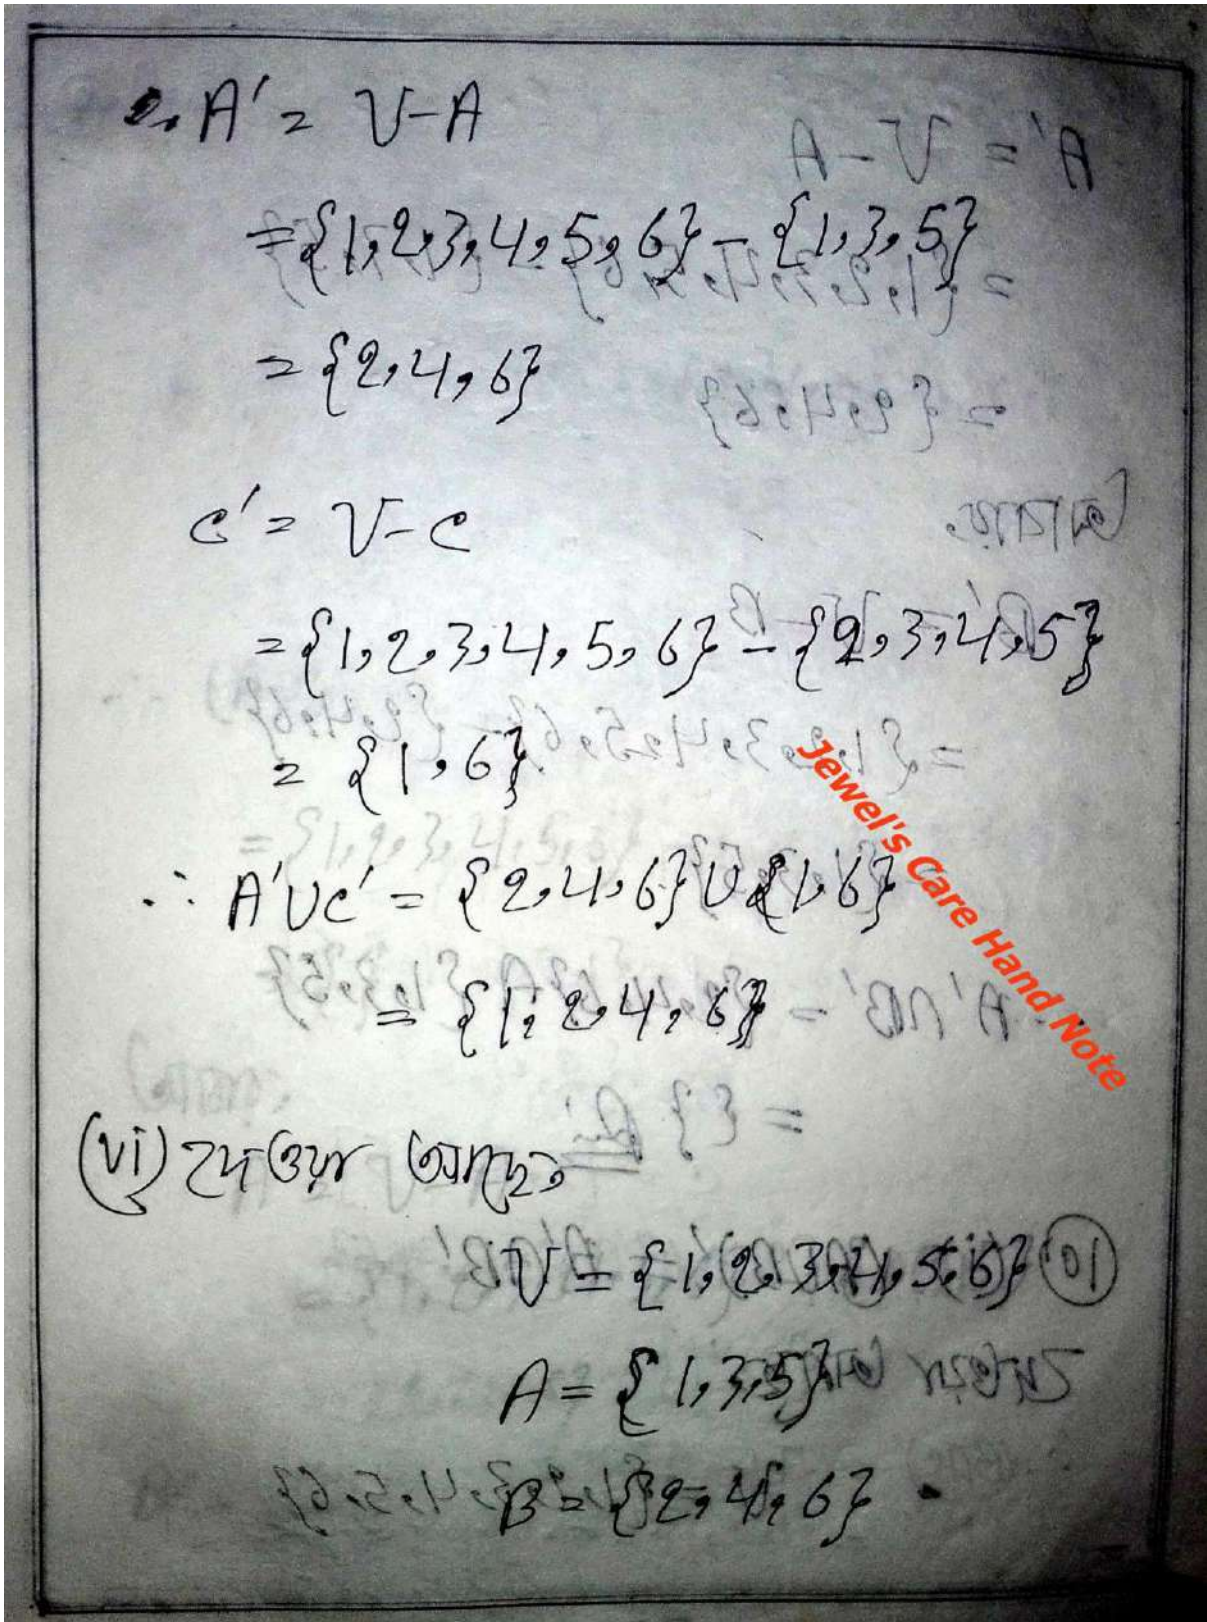 ∴ A' = U-A
= {1,2,3,4,5,6} - {1,3,5}
= {2,4,6}
C' = U-C
= {1,2,3,4,5,6} - {2,3,4,5}
= {1,6}
∴ A'UC' = {2,4,6} U {1,6}
= {1,2,4,6}
Jewel's Care Hand Note
(vi) দেওয়া আছে,
U = {1,2,3,4,5,6}
A = {1,3,5}
B = {2,4,6}